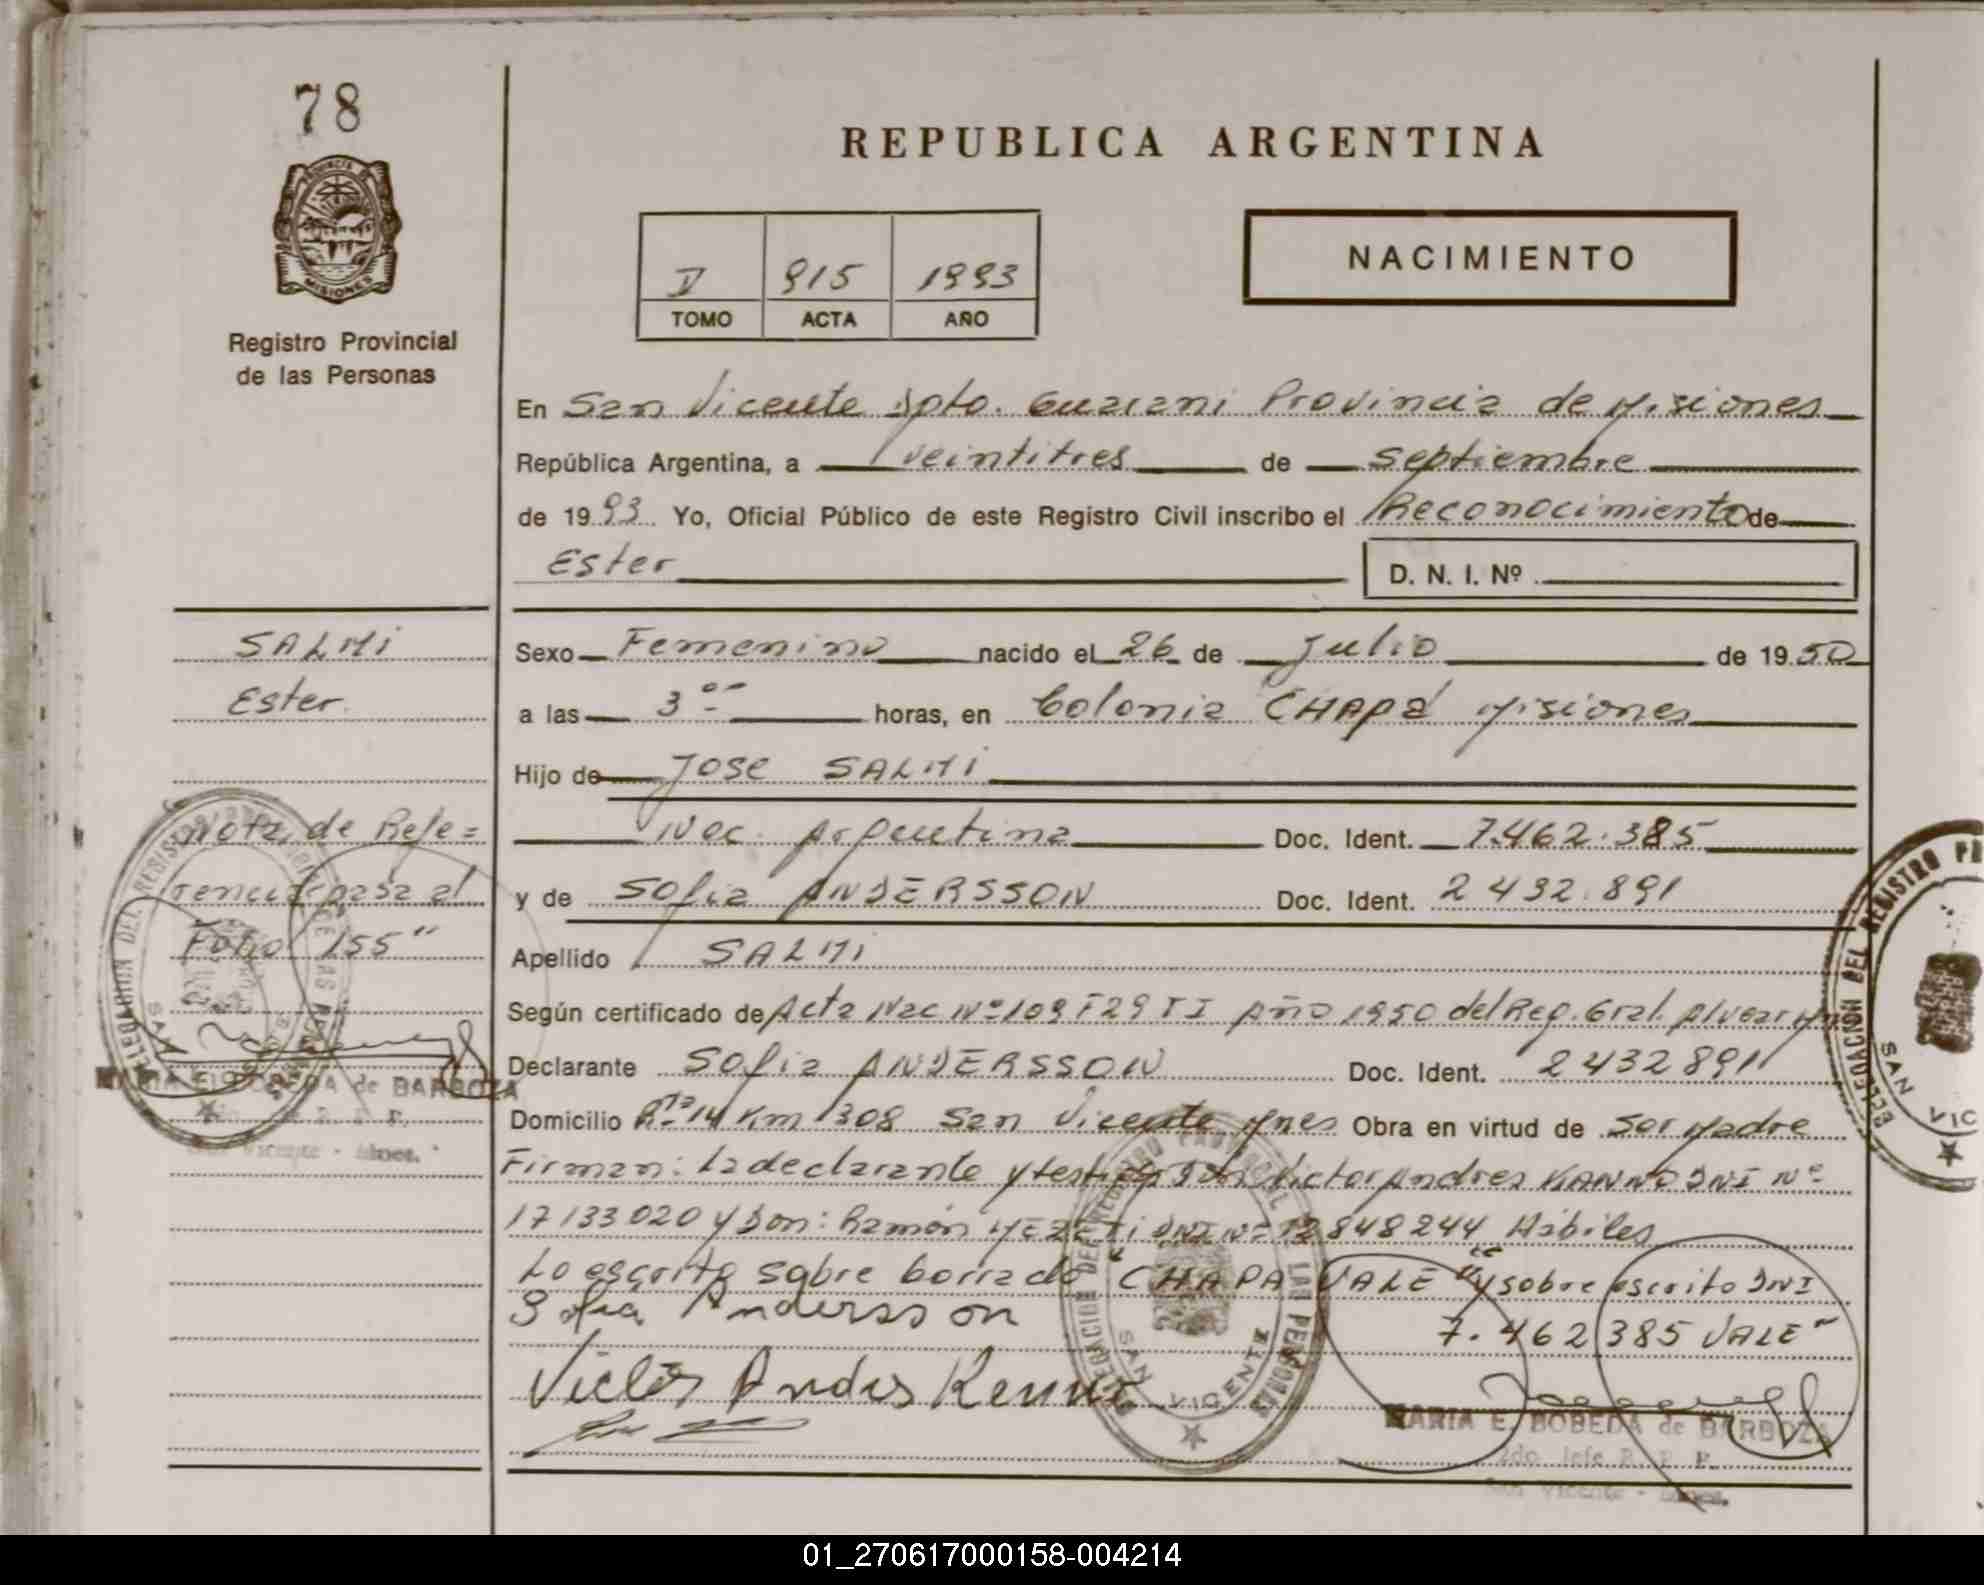 78
PROVINCIA DE
MISIONES
Registro Provincial
de las Personas
REPUBLICA ARGENTINA
V 915 1993
TOMO ACTA AÑO
NACIMIENTO
En San Vicente Dpto. Guarani Provincia de Misiones
República Argentina, a veintitres de septiembre
de 1993 Yo, Oficial Público de este Registro Civil inscribo el Reconocimiento de
Ester
D. N. I. Nº
SALMI
Ester.
Sexo Femenino nacido el 26 de Julio de 1950
a las 3 horas, en Colonia CHAPA Misiones
Hijo de Jose SALMI
Nac. Argentina Doc. Ident. 7.462.385
y de Sofia ANDERSSON Doc. Ident. 2432.891
Apellido SALMI
Según certificado de Acta Nac Nº 109 F29 TI Año 1950 del Reg. Gral. Alvear
Declarante Sofia ANDERSSON Doc. Ident. 2432891
Domicilio Rta 14 Km 1308 San Vicente Mnes Obra en virtud de Ser Madre
Firman: La declarante y testigos Don Victor Andres KANNO DNI Nº
17133020 y Don: Ramón DNI Nº 12848244 Hábiles
Lo escrito sobre borrado "CHAPA VALE" y sobre escrito DNI
7.462385 VALE"
Sofia Andersson
Victor Andres
MARIA E. BOBEDA de BARBOZA
2do. Jefe R. P. P.
San Vicente - Mnes.
Nota de Refe=
rencia pasa al
Folio 155"
MARIA E. BOBEDA de BARBOZA
2do. R. P. P.
San Vicente - Mnes.
DELEGACION DEL REGISTRO PROVINCIAL DE LAS PERSONAS
SAN VICENTE
DELEGACION DEL REGISTRO
SAN VIC
01_270617000158-004214